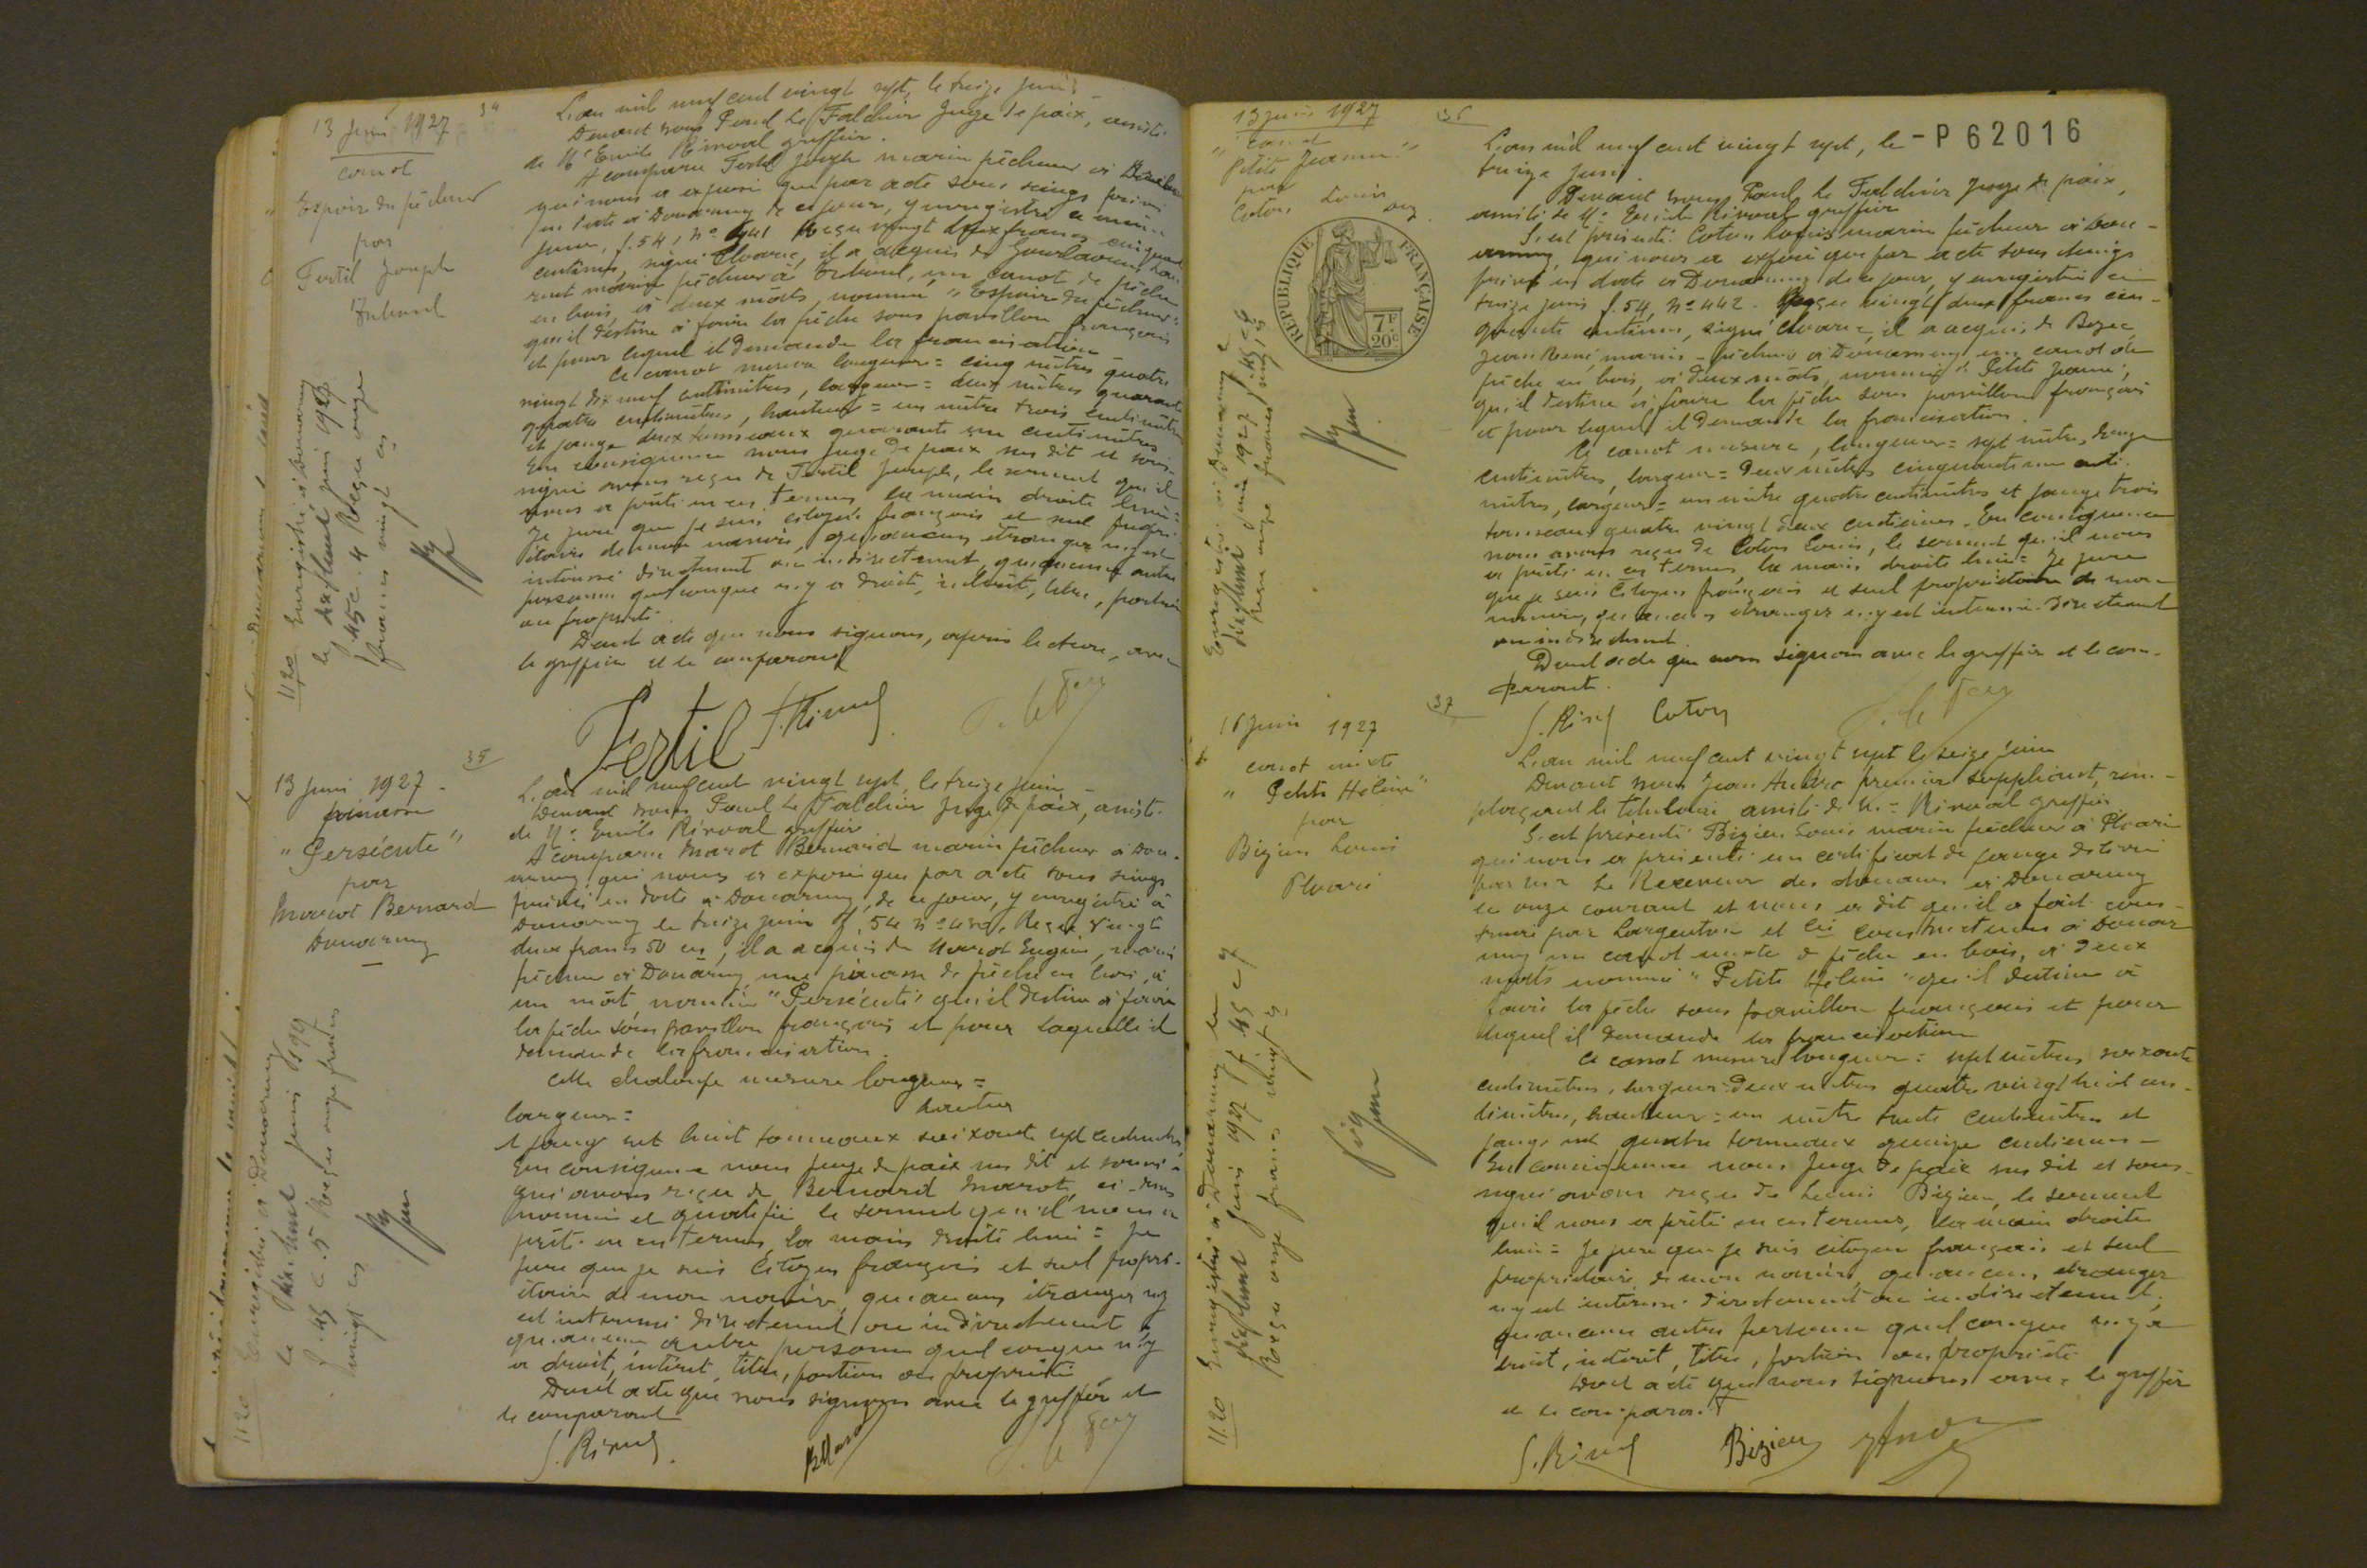 34
13 Juin 1927
canot
"Espoir du pêcheur
par
Fertil Joseph
Tréboul
L'an mil neuf cent vingt sept, le treize juin
Devant nous Paul Le Falchier Juge de paix, assisté
de Me Emile Rinval greffier.
A comparu Fertil Joseph marin pêcheur à
qui nous a exposé que par acte sous seings privés
en date à Douarnenez de ce jour, y enregistré ce même
jour, f. 54, no 441 Reçu vingt deux francs cinquante
centimes, signé il a acquis de
marin pêcheur à Tréboul, un canot de pêche
en bois, à deux mâts, nommé "Espoir du pêcheur"
qu'il destine à faire la pêche sous pavillon français
et pour lequel il demande la francisation
Ce canot mesure longueur = cinq mètres quatre
vingt dix neuf centimètres, largeur = deux mètres quarante
quatre centimètres, hauteur = un mètre trois centimètres
et jauge deux tonneaux quarante un centimètres
En conséquence nous juge de paix sus dit et sous-
signé avons reçu de Fertil Joseph, le serment qu'il
nous a prêté en ces termes la main droite levée =
Je jure que je suis citoyen français et seul propri-
étaire de mon navire, qu'aucun étranger n'y est
intéressé directement ou indirectement, qu'aucune autre
personne quelconque n'y a droit, intérêt, titre, portion
ou propriété.
Dont acte que nous signons, après lecture, avec
le greffier et le comparant
Fertil
11.20 Enregistré à Douarnenez
le dix huit juin 1927
f. 45 c. 4 Reçu onze
francs vingt cs
35
13 Juin 1927
pinasse
"Persécuté"
par
Marot Bernard
Douarnenez
L'an mil neuf cent vingt sept, le treize juin
Devant nous Paul Le Falchier Juge de paix, assisté
de Me Emile Rinval greffier
A comparu Marot Bernard marin pêcheur à Dou-
arnenez qui nous a exposé que par acte sous seings
privés en date à Douarnenez, de ce jour, y enregistré à
Douarnenez le treize juin f. 54 no Reçu Vingt
deux francs 50 cs, il a acquis de Marot Eugène, marin
pêcheur à Douarnenez, une pinasse de pêche en bois, à
un mât, nommée "Persécuté" qu'il destine à faire
la pêche sous pavillon français et pour laquelle il
demande la francisation.
Cette chaloupe mesure longueur =
largeur = hauteur
et jauge net huit tonneaux soixante sept centimètres
En conséquence nous juge de paix sus dit et soussi-
gné avons reçu de Bernard Marot, ci-dessus
nommé et qualifié le serment qu'il nous a
prêté en ces termes, la main droite levée = Je
jure que je suis Citoyen français et seul propri-
étaire de mon navire, qu'aucun étranger n'y
est intéressé directement ou indirectement &
qu'aucune autre personne quelconque n'y
a droit, intérêt, titre, portion ou propriété
Dont acte que nous signons avec le greffier et
le comparant
11.20 Enregistré à Douarnenez
le dix huit juin 1927
f. 45 c. 5 Reçu onze francs
vingt cs
36
13 juin 1927
"Canot
Petite Jeanne"
par
Coton Louis
Dnz.
RÉPUBLIQUE FRANÇAISE
7F
20c
-P 62016
L'an mil neuf cent vingt sept, le
treize juin
Devant nous Paul Le Falchier Juge de paix,
assisté de Me Emile Rinval greffier
S'est présenté Coton Louis marin pêcheur à Dou-
arnenez, qui nous a exposé que par acte sous seings
privés en date à Douarnenez de ce jour, y enregistré ce
treize juin f. 54, no 442. Reçu vingt deux francs cin-
quante centimes, signé il a acquis de Bozec
Jean René marin-pêcheur à Douarnenez un canot de
pêche en bois, à deux mâts, nommé "Petite Jeanne",
qu'il destine à faire la pêche sous pavillon français
et pour lequel il demande la francisation.
Ce canot mesure, longueur = sept mètres, douze
centimètres, largeur = Deux mètres cinquante un centi-
mètres, largeur = un mètre quatre centimètres et jauge trois
tonneaux quatre vingt deux centièmes. En conséquence
nous avons reçu de Coton Louis, le serment qu'il nous
a prêté en ces termes, la main droite levée = Je jure
que je suis Citoyen français et seul propriétaire de mon
navire, qu'aucun étranger n'y est intéressé directement
ou indirectement.
Dont acte que nous signons avec le greffier et le com-
parant.
Coton
Enregistré à Douarnenez le
dix huit juin 1927 f. 45 c. 6
Reçu onze francs vingt cs
37
16 Juin 1927
canot mixte
"Petite Hélène"
par
Bizien Louis
Ploaré
L'an mil neuf cent vingt sept le seize juin
Devant nous Jean premier suppléant, rem-
plaçant le titulaire assisté de Me Rinval greffier
S'est présenté Bizien Louis marin pêcheur à Ploaré
qui nous a présenté un certificat de jauge délivré
par Mr le Receveur des douanes à Douarnenez
le onze courant et nous a dit qu'il a fait cons-
truire par Largenton et Cie constructeurs à Douar
nenez un canot mixte de pêche en bois, à deux
mâts nommé "Petite Hélène" qu'il destine à
faire la pêche sous pavillon français et pour
lequel il demande la francisation
Ce canot mesure longueur = sept mètres soixante
centimètres, largeur = Deux mètres quatre vingt huit cen-
timètres, hauteur = un mètre trente centimètres et
jauge net quatre tonneaux quinze centièmes -
En conséquence nous Juge de paix sus dit et sous-
signé avons reçu de Louis Bizien, le serment
qu'il nous a prêté en ces termes, la main droite
levée = Je jure que je suis citoyen français et seul
propriétaire de mon navire, qu'aucun étranger
n'y est intéressé directement ou indirectement,
qu'aucune autre personne quelconque n'y a
droit, intérêt, titre, portion ou propriété.
Dont acte que nous signons avec le greffier
et le comparant
Bizien
11.20 Enregistré à Douarnenez le
dix huit juin 1927 f. 45 c. 7
Reçu onze francs vingt cs